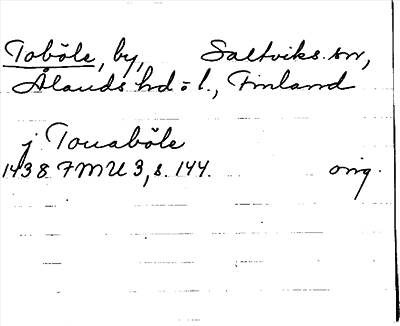 Toböle, by, Saltviks sn,
Ålands hd o l., Finland
j Touaböle
1438 FMU 3, s. 144. orig.